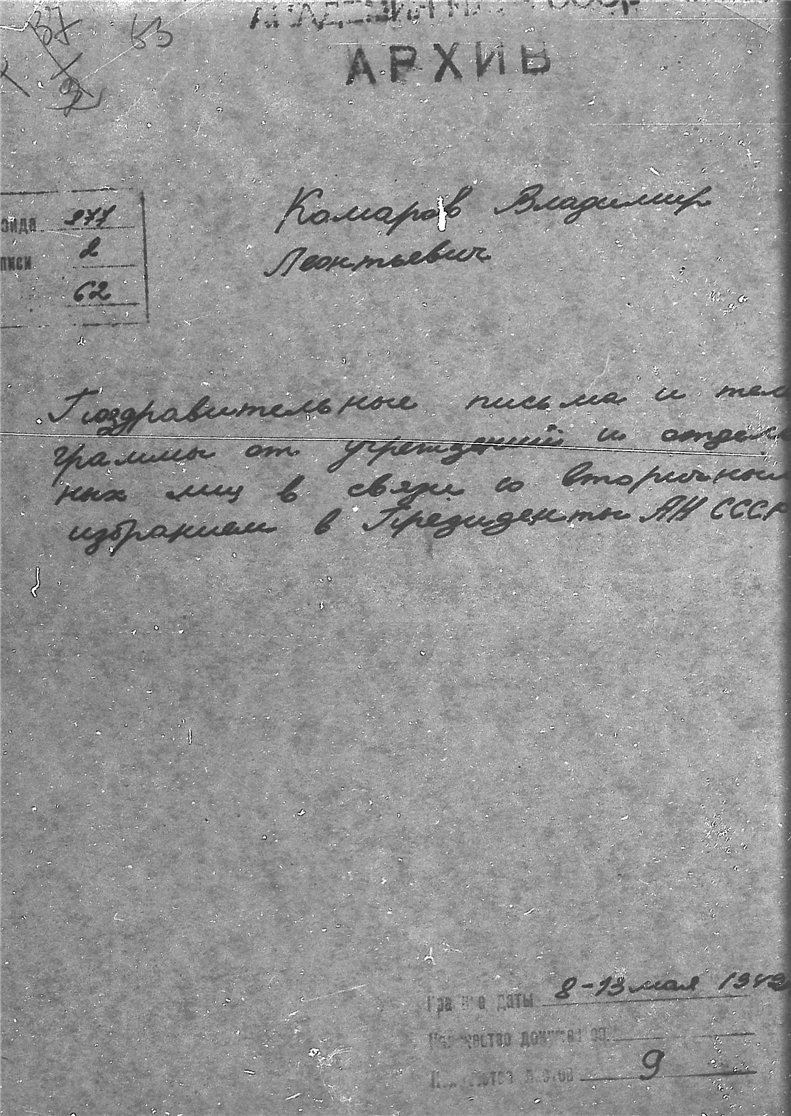 37 53
АРХИВ
277
2
62
Комаров Владимир
Леонтьевич
Поздравительные письма и теле
граммы от учреждений и отдель
ных лиц в связи со вторичным
избранием в Президенты АН СССР
даты 8-13 мая 1942
9